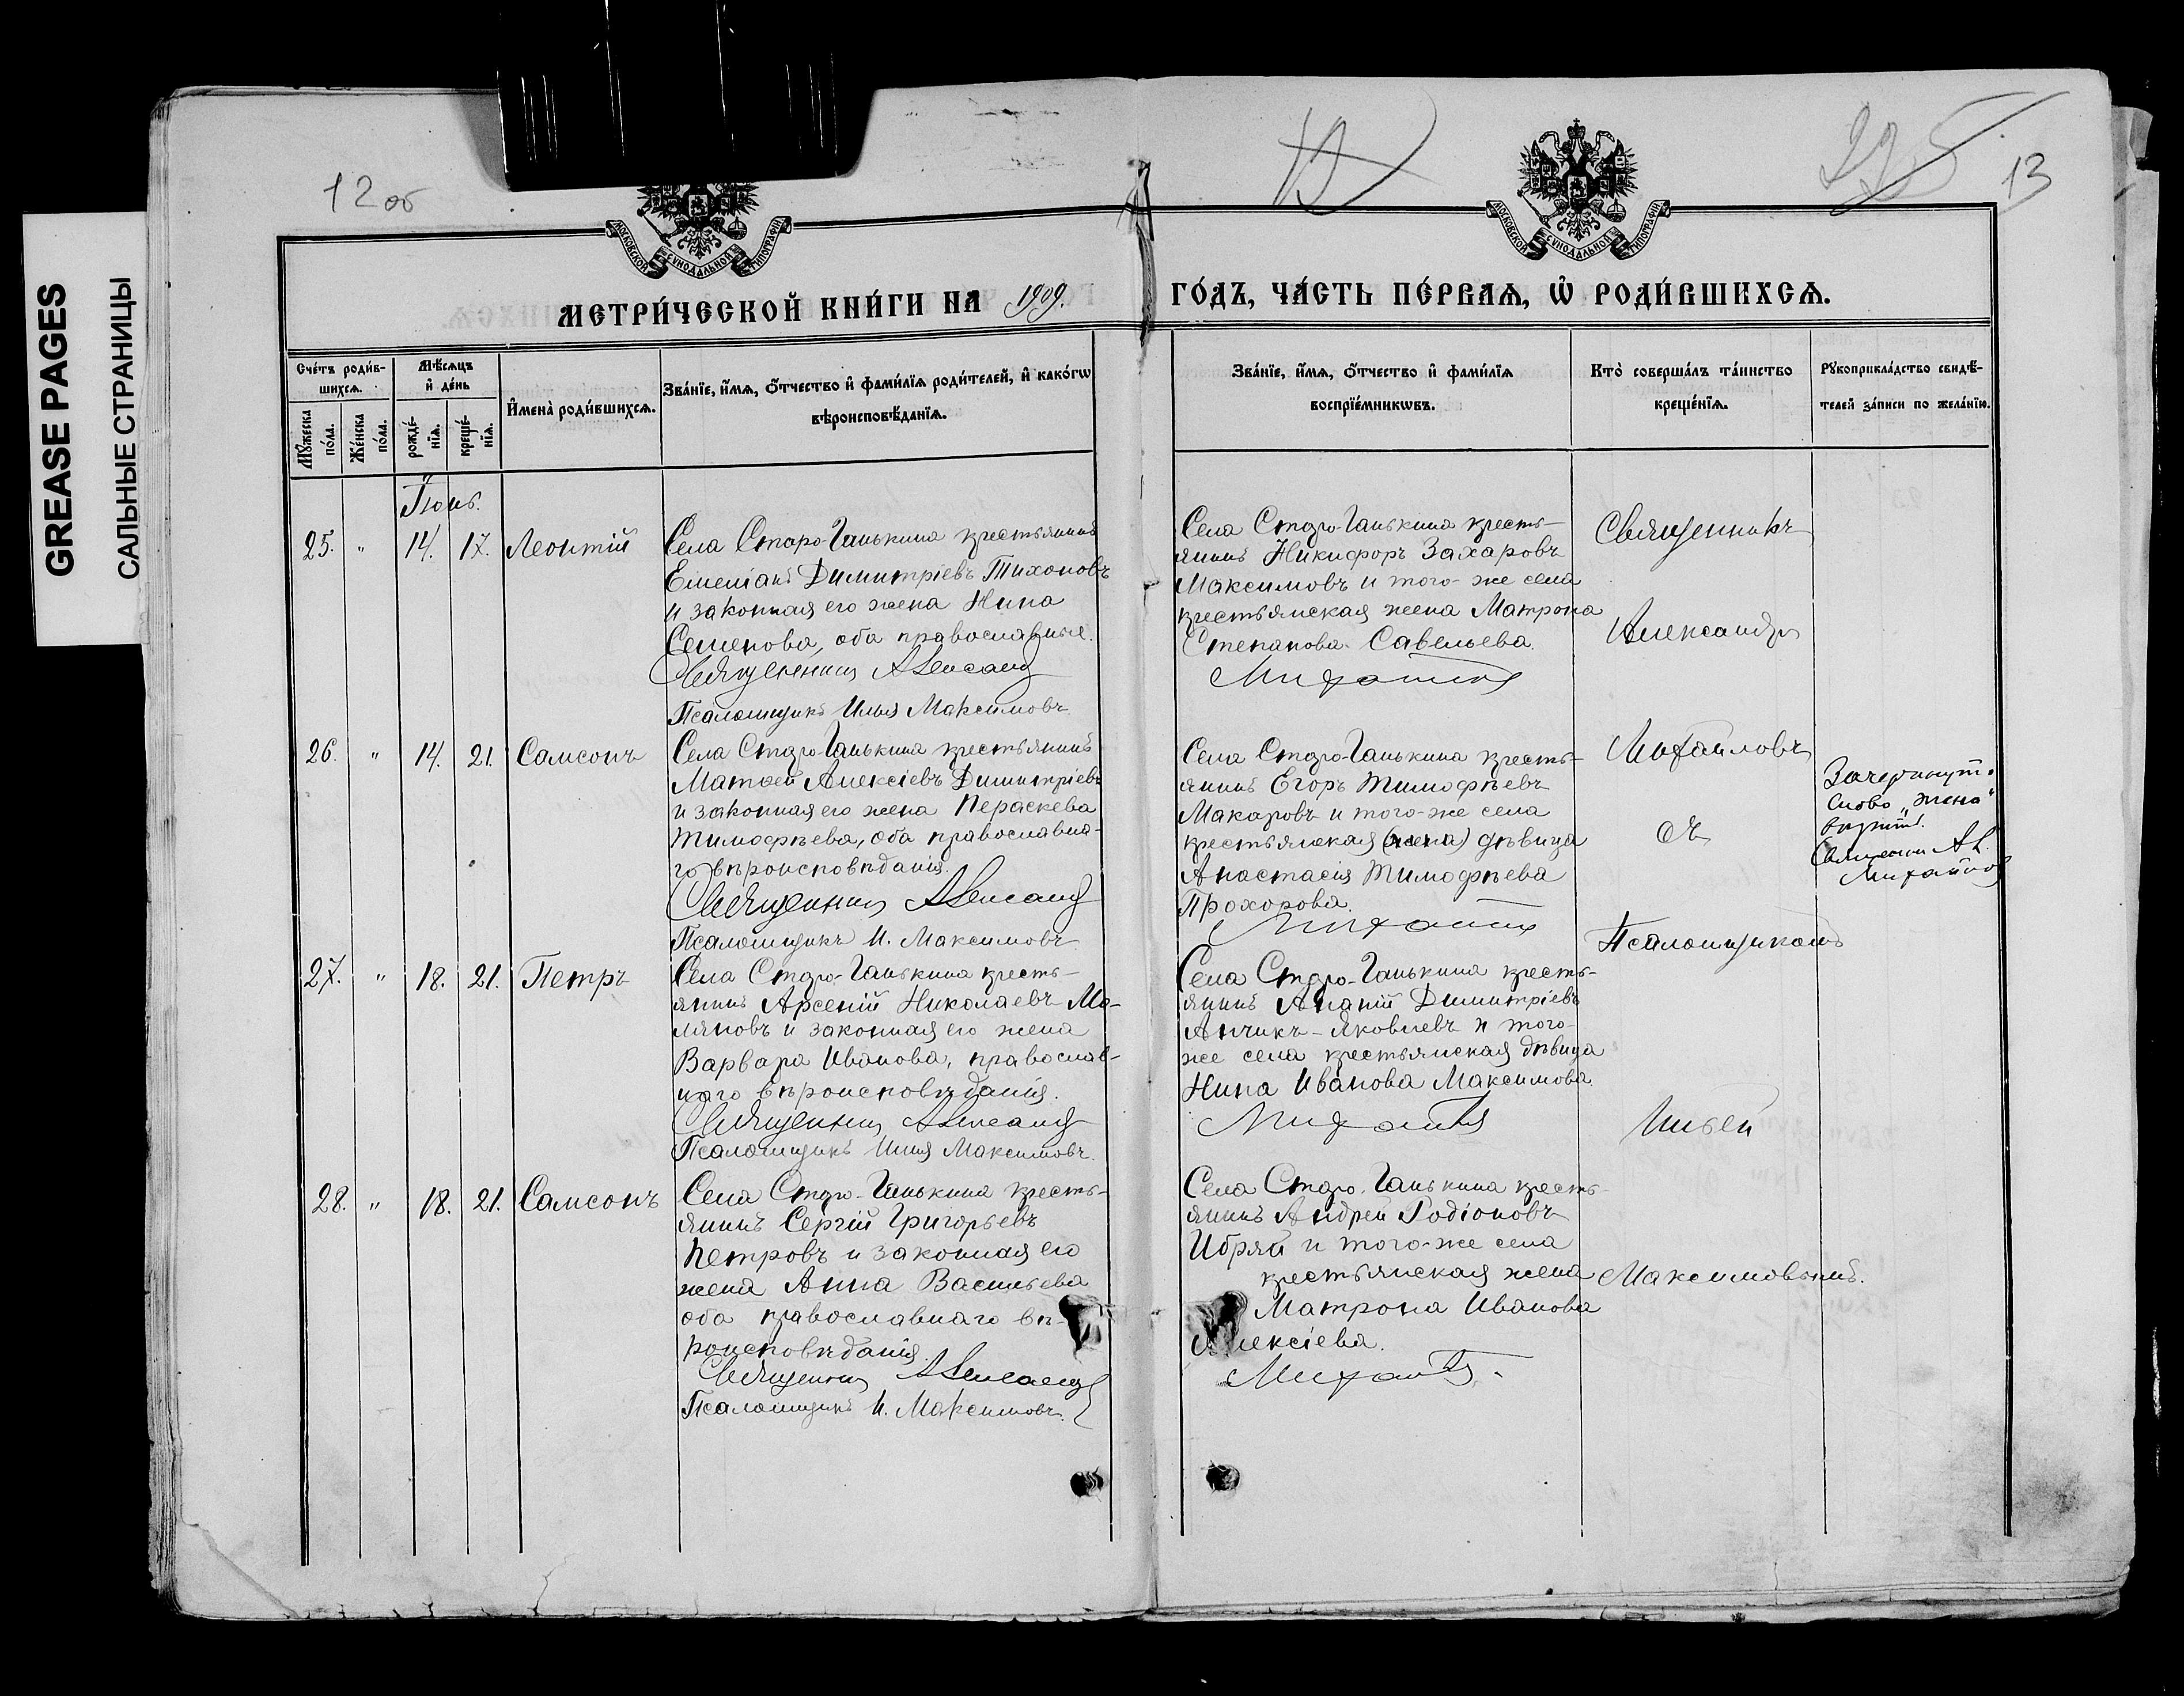 GREASE PAGES
САЛЬНЫЕ СТРАНИЦЫ
12 об
13
МОСКОВСКОЙ СѴНОДАЛЬНОЙ ТИПОГРАФІИ
МОСКОВСКОЙ СѴНОДАЛЬНОЙ ТИПОГРАФІИ
МЕТРИ́ЧЕСКОЙ КНИ́ГИ НА 1909.
ГО́ДЪ, ЧА́СТЬ ПЕ́РВАѦ, Ѽ РОДИ́ВШИХСѦ.
Сче́тъ роди́в-
шихсѧ.
Мꙋ́жеска
по́ла.
Же́нска
по́ла.
Мѣ́сѧцъ
и҆ де́нь
рожде́-
нїѧ.
креще́-
нїѧ.
И҆мена̀ роди́вшихсѧ.
Зва́нїе, и҆́мѧ, ѻ҆́тчество и҆ фами́лїѧ роди́телей, и҆ како́гѡ
вѣроисповѣ́данїѧ.
Зва́нїе, и҆́мѧ, ѻ҆́тчество и҆ фами́лїѧ
воспрїе́мникѡвъ.
Кто̀ соверша́лъ та́инство
креще́нїѧ.
Рꙋкоприкла́дство свидѣ́-
телей за́писи по жела́нїю.
Іюнь.
25. " 14. 17. Леонтій
Села Старо-Ганькина крестьянинъ
Емеліанъ Димитріевъ Тихоновъ
и законная его жена Нина
Семенова, оба православные.
Священникъ Александръ
Псаломщикъ Илья Максимовъ
Села Старо-Ганькина кресть-
янинъ Никифоръ Захаровъ
Максимовъ и того-же села
крестьянская жена Матрона
Степанова Савельева.
Михайловъ
26. " 14. 21. Самсонъ
Села Старо-Ганькина крестьянинъ
Матѳей Алексіевъ Димитріевъ
и законная его жена Пераскева
Тимофѣева, оба православна-
го вѣроисповѣданія.
Священникъ Александръ
Псаломщикъ И. Максимовъ
Села Старо-Ганькина кресть-
янинъ Егоръ Тимофѣевъ
Макаровъ и того-же села
крестьянская (жена) дѣвица
Анастасія Тимофѣева
Прохорова.
Михайловъ
27. " 18. 21. Петръ
Села Старо-Ганькина кресть-
янинъ Арсеній Николаевъ Мо-
ляновъ и законная его жена
Варвара Иванова, православ-
наго вѣроисповѣданія.
Священникъ Александръ
Псаломщикъ Илия Максимовъ.
Села Старо-Ганькина кресть-
янинъ Ананій Димитріевъ
Анчикъ-Яковлевъ и того-
же села крестьянская дѣвица
Нина Иванова Максимова.
Михайловъ
28. " 18. 21. Самсонъ
Села Старо-Ганькина кресть-
янинъ Сергій Григорьевъ
Петровъ и законная его
жена Анна Васильева
оба православнаго вѣ-
роисповѣданія.
Священникъ Александръ
Псаломщикъ И. Максимовъ.
Села Старо-Ганькина кресть-
янинъ Андрей Родіоновъ
Ибряй и того-же села
крестьянская жена
Матрона Иванова
Алексіева.
Михайловъ.
Священникъ
Александръ
Михайловъ
съ
Псаломщикомъ
Ильей
Максимовымъ.
Зачеркнут.
слово "жена"
Священник Ал.
Михайлов